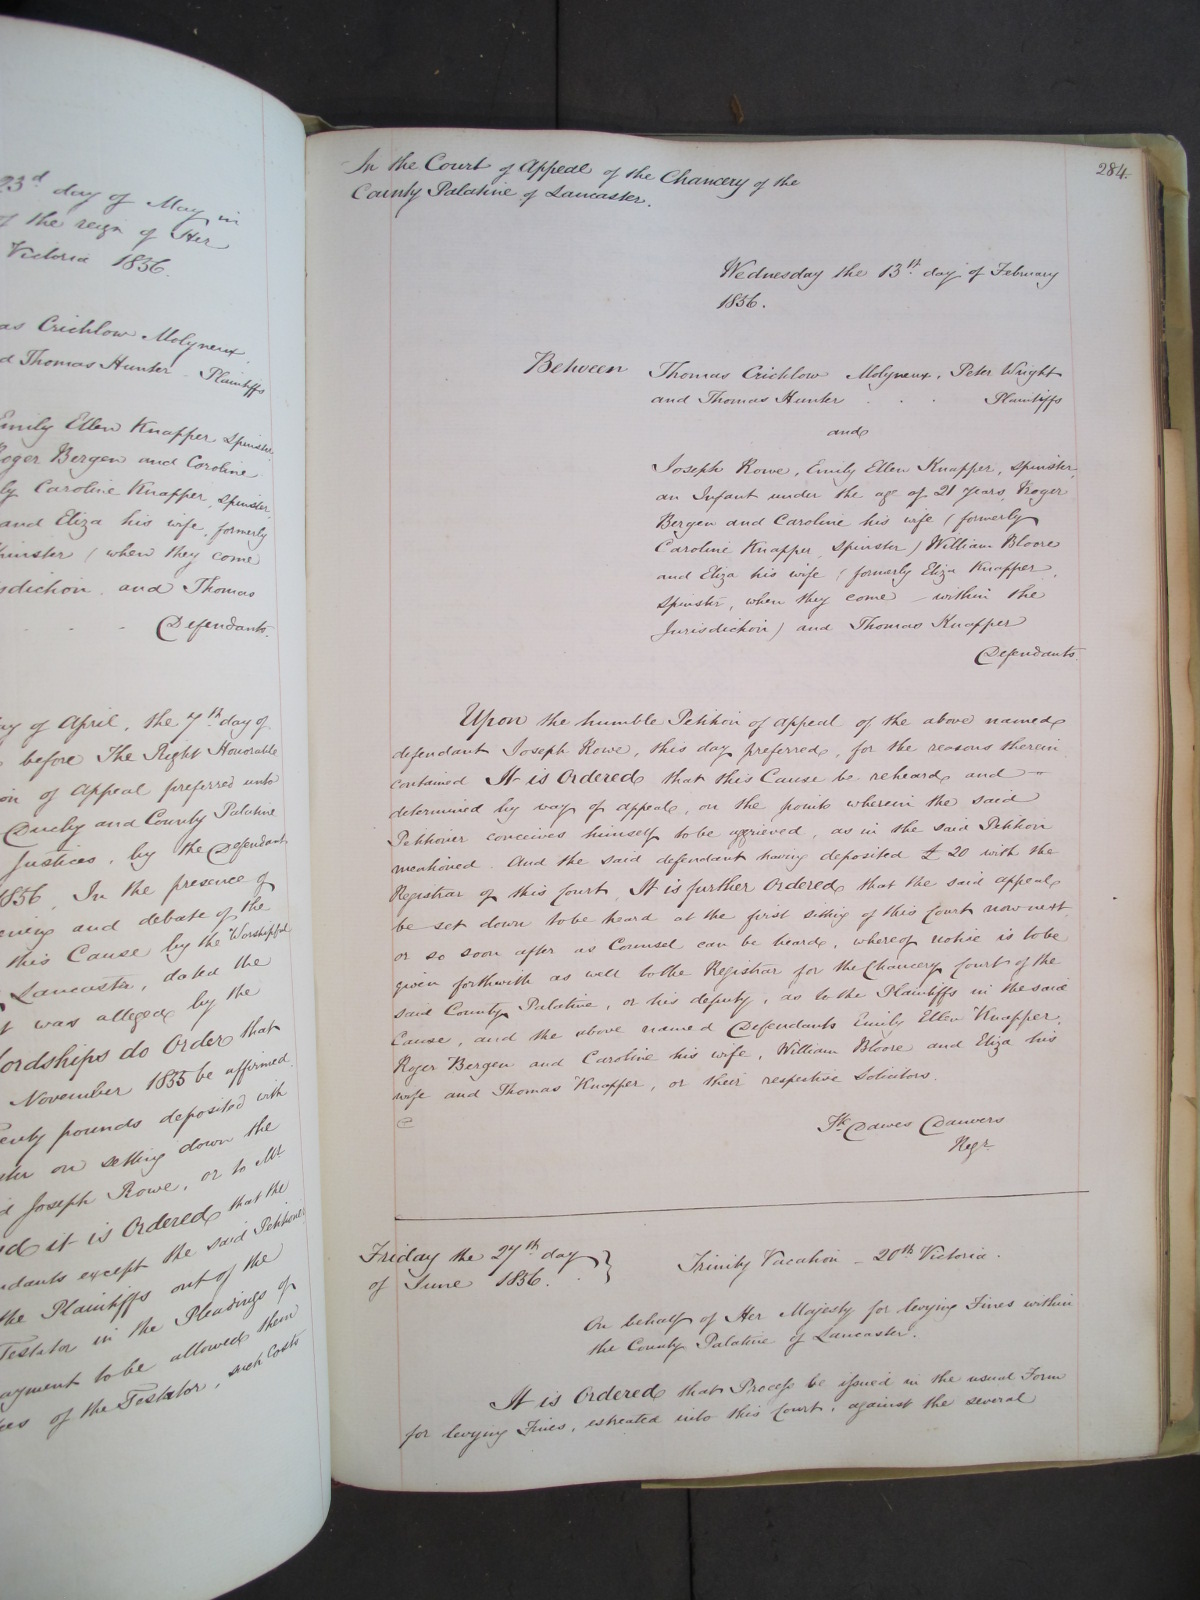 23d day of May in
of the reign of Her
Victoria 1856.
as Crichlow Molyneux,
d Thomas Hunter - Plaintiffs
Emily Ellen Knapper Spinster
Roger Bergen and Caroline
ly Caroline Knapper, Spinster,
and Eliza his wife, formerly
Spinster (when they come
isdiction, and Thomas
Defendants.
ay of April, the 7th day of
before The Right Honorable
on of Appeal preferred unto
Duchy and County Palatine
Justices, by the Defendant
1856. In the presence of
and debate of the
this Cause by the Worshipful
Lancaster, dated the
t was alleged by the
Lordships do Order that
November 1855 be affirmed
enty pounds deposited with
on setting down the
d Joseph Rowe, or to Mr
d it is Ordered that the
ndants except the said Petitioner
the Plaintiffs out of the
Testator in the Pleadings of
ayment to be allowed them
of the Testator, such Costs
284.
In the Court of Appeal of the Chancery of the
County Palatine of Lancaster.
Wednesday the 13th day of February
1856.
Between Thomas Crichlow Molyneux, Peter Wright
and Thomas Hunter . . . Plaintiffs
and
Joseph Rowe, Emily Ellen Knapper, Spinster,
an Infant under the age of 21 years, Roger
Bergen and Caroline his wife (formerly
Caroline Knapper, Spinster) William Bloore
and Eliza his wife (formerly Eliza Knapper,
Spinster, when they come within the
Jurisdiction) and Thomas Knapper
Defendants.
Upon the humble Petition of appeal of the above named
defendant Joseph Rowe, this day preferred, for the reasons therein
contained It is Ordered that this Cause be reheard and
determined by way of appeal, on the points wherein the said
Petitioner conceives himself to be aggrieved, as in the said Petition
mentioned. And the said defendant having deposited £20 with the
Registrar of this Court, It is further Ordered that the said appeal
be set down to be heard at the first sitting of this Court now next
or so soon after as Counsel can be heard, whereof notice is to be
given forthwith as well to the Registrar for the Chancery Court of the
said County Palatine, or his deputy, as to the Plaintiffs in the said
Cause, and the above named Defendants Emily Ellen Knapper,
Roger Bergen and Caroline his wife, William Bloore and Eliza his
wife and Thomas Knapper, or their respective Solicitors.
Fk Dawes Danvers
Regr.
Friday the 27th day
of June 1856. } Trinity Vacation - 20th Victoria.
On behalf of Her Majesty for levying Fines within
the County Palatine of Lancaster.
It is Ordered that Process be issued in the usual Form
for levying Fines, estreated into this Court, against the several